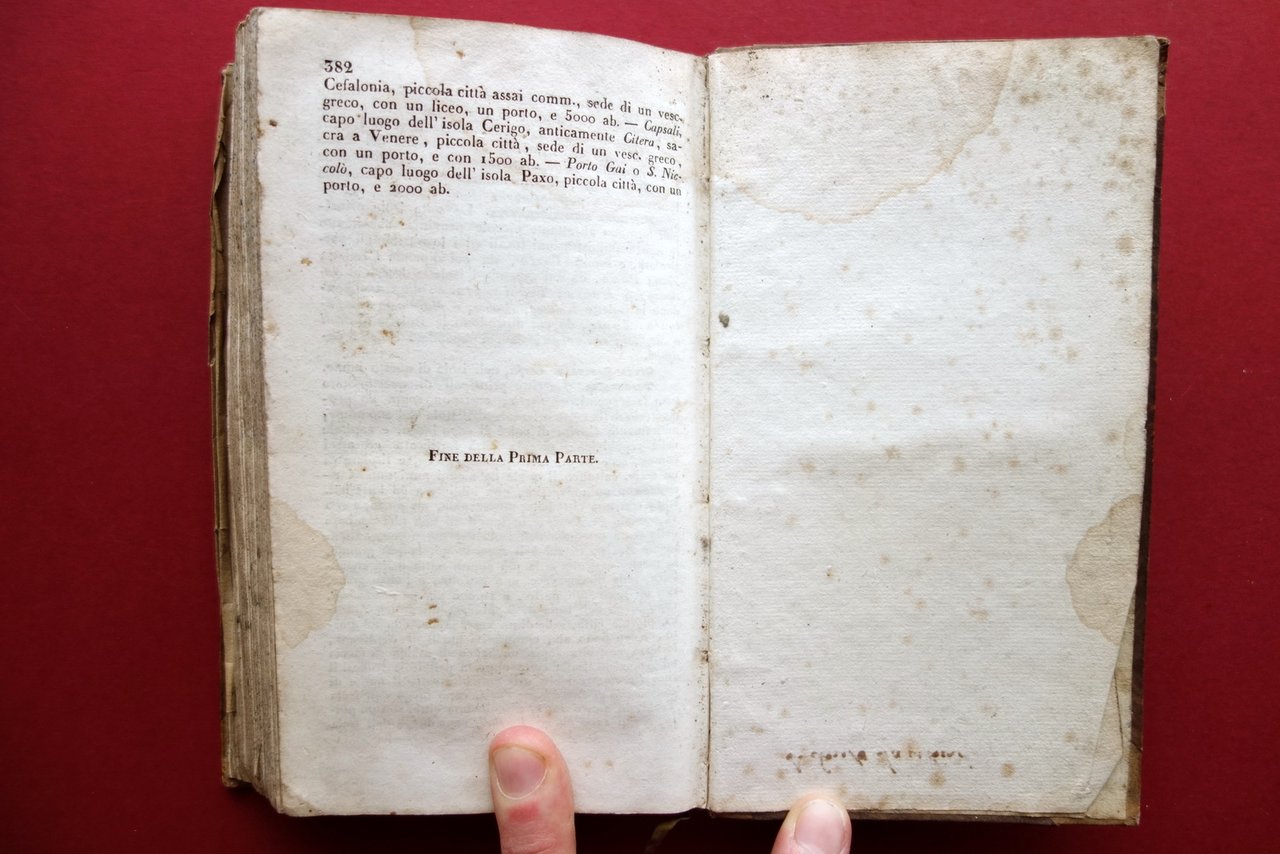 382
Cefalonia, piccola città assai comm., sede di un vesc.
greco, con un liceo, un porto, e 5000 ab. — Capsali,
capo luogo dell' isola Cerigo, anticamente Citera, sa-
cra a Venere, piccola città, sede di un vesc. greco,
con un porto, e con 1500 ab. — Porto Gai o S. Nic-
colò, capo luogo dell' isola Paxo, piccola città, con un
porto, e 2000 ab.
FINE DELLA PRIMA PARTE.